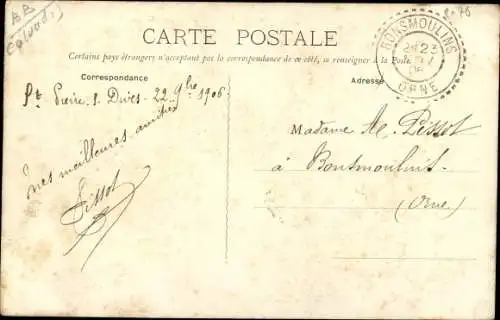 AB
(Calvados)
2-76
CARTE POSTALE
BONSMOULINS
23
ORNE
Certains pays étrangers n'acceptant pas la correspondance de ce côté, se renseigner à la Poste.
Correspondance
Adresse
St Pierre s. Dives - 22 9bre 1906
mes meilleures amitiés
Tissot
Madame A. Tissot
à Bonsmoulins
(Orne)